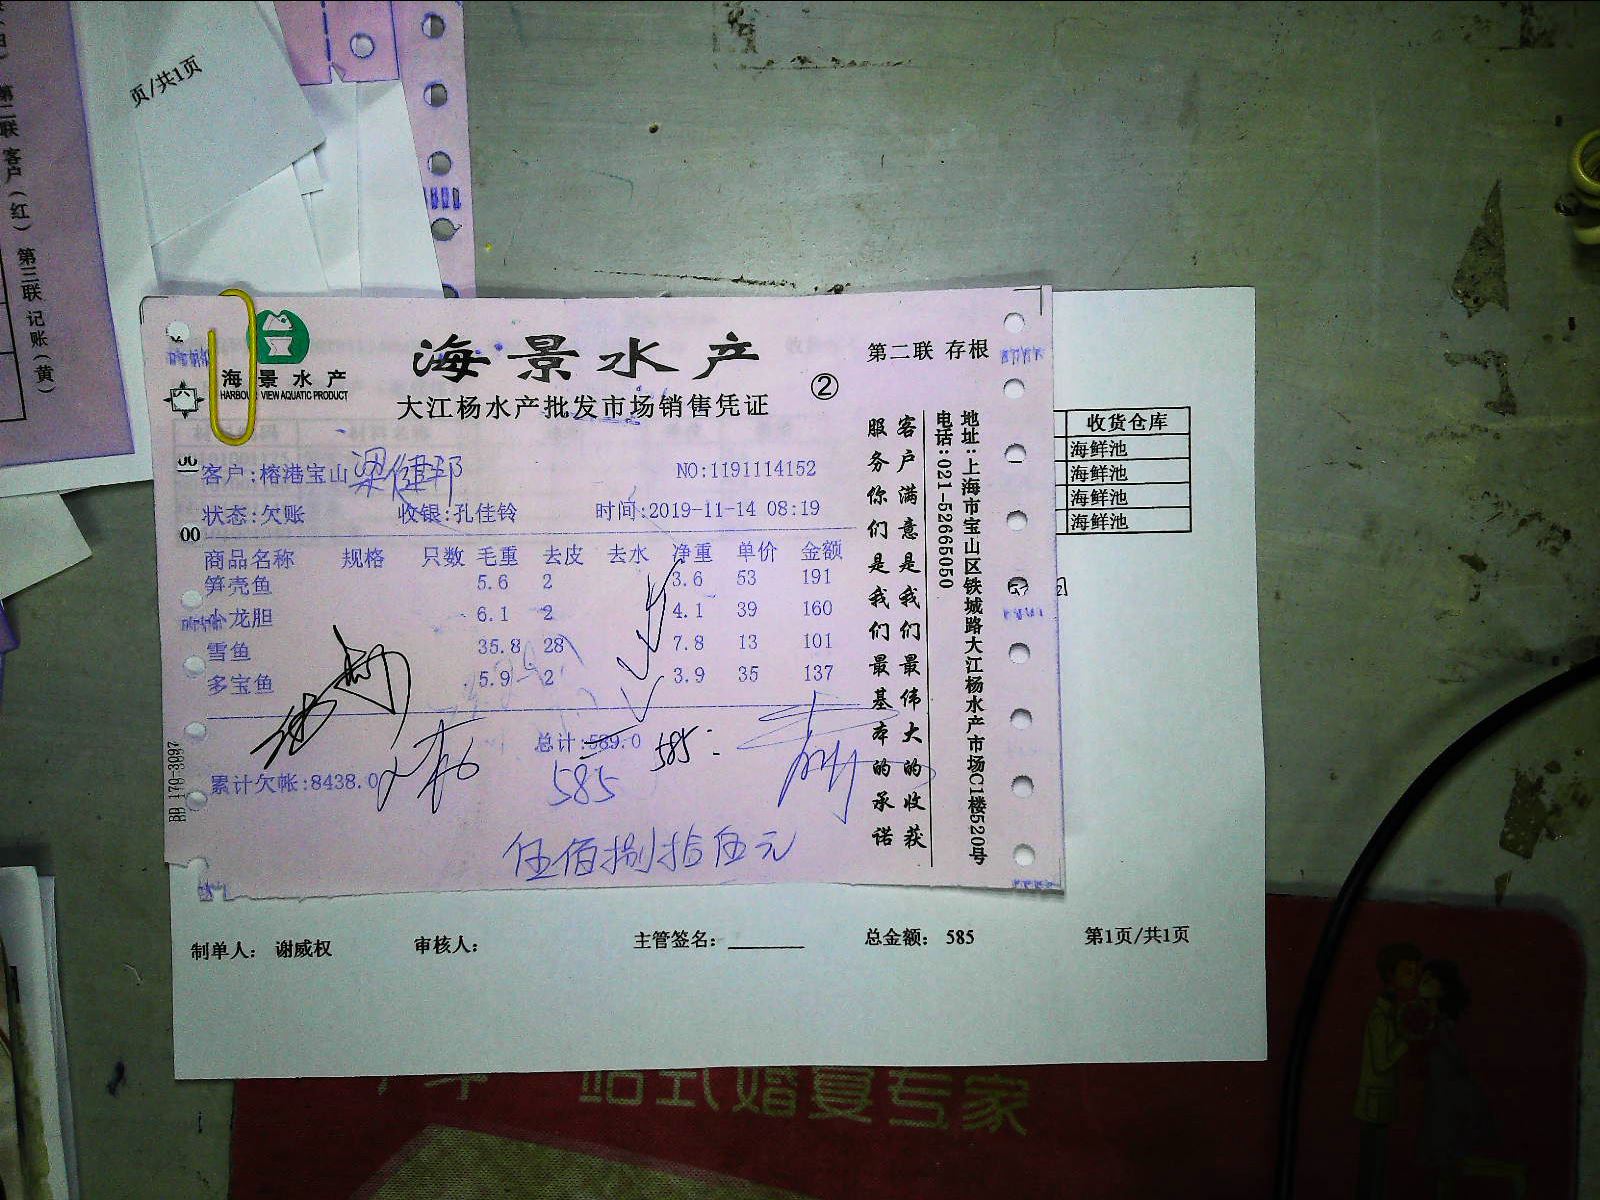 页/共1页
第二联 客户(红) 第三联 记账(黄)
海景水产
HARBOUR VIEW AQUATIC PRODUCT
海景水产
第二联 存根
大江杨水产批发市场销售凭证
②
客户:榕港宝山 梁健邦
NO:1191114152
状态:欠账 收银:孔佳铃 时间:2019-11-14 08:19
商品名称 规格 只数 毛重 去皮 去水 净重 单价 金额
笋壳鱼 5.6 2 3.6 53 191
小龙胆 6.1 2 4.1 39 160
雪鱼 35.8 28 7.8 13 101
多宝鱼 5.9 2 3.9 35 137
总计:589.0 585
累计欠帐:8438.0
585
伍佰捌拾伍元
客户满意是我们最伟大的收获
服务你们是我们最基本的承诺
地址:上海市宝山区铁城路大江杨水产市场C1楼520号
电话:021-52665050
收货仓库
海鲜池
海鲜池
海鲜池
海鲜池
制单人: 谢威权 审核人: 主管签名: 总金额: 585 第1页/共1页
站式婚宴专家